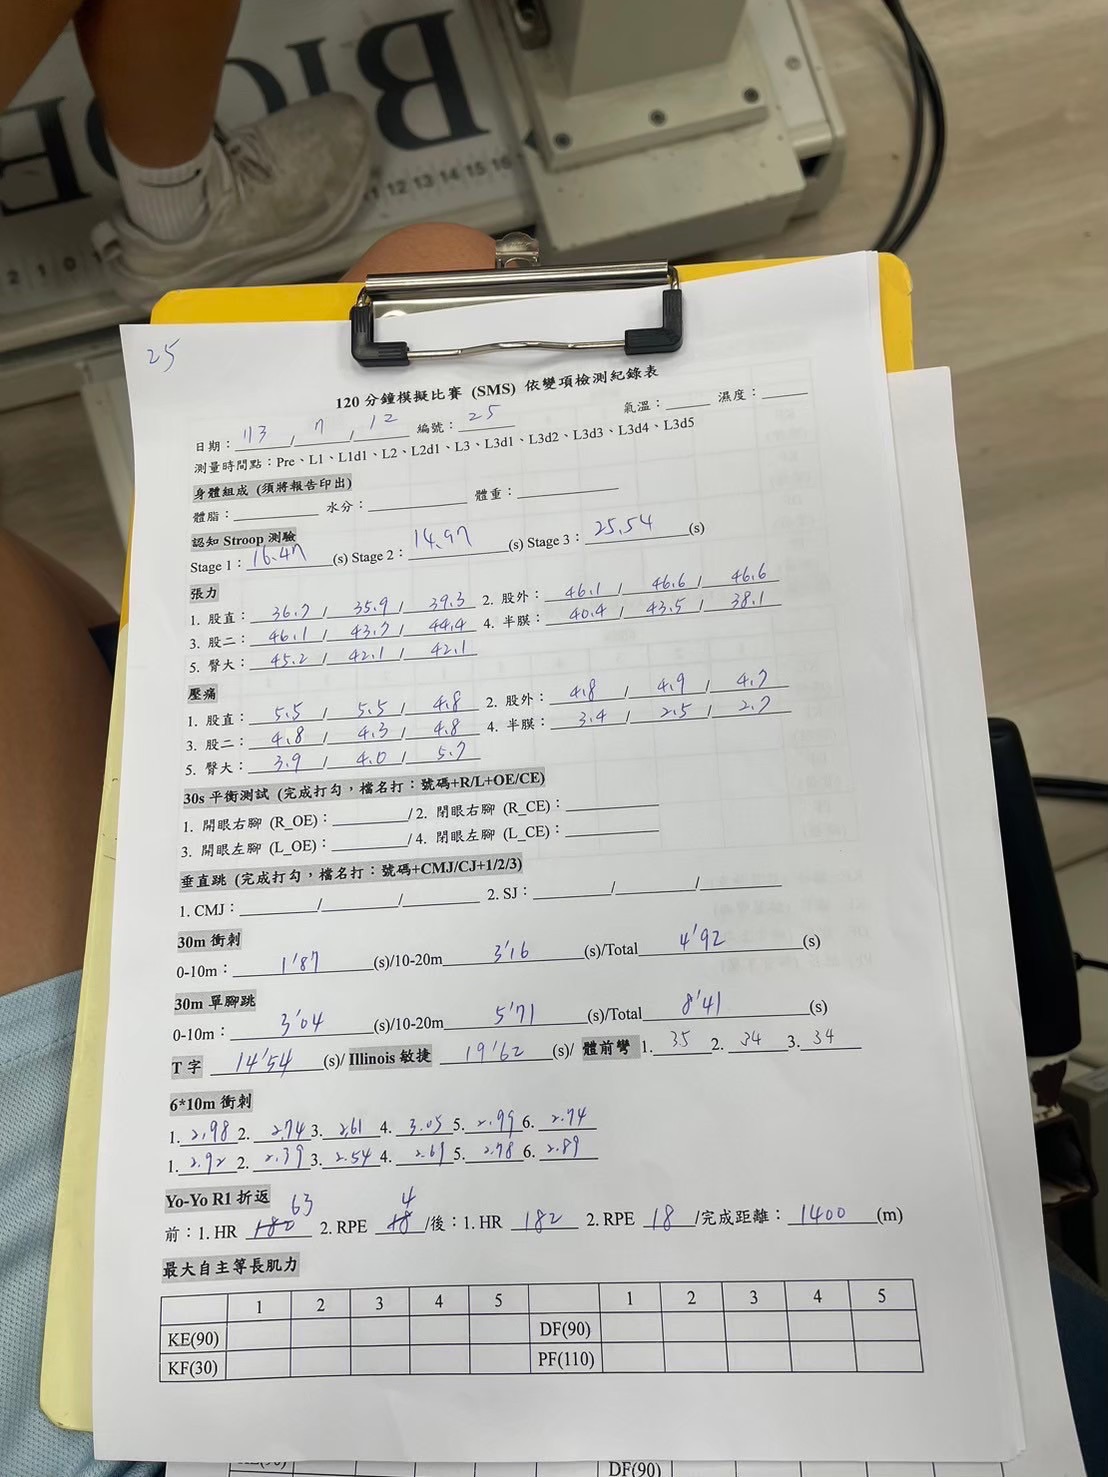 BIO
12 13 14 15 16
2 1 0
25
120 分鐘模擬比賽 (SMS) 依變項檢測紀錄表
日期：113 / 7 / 12 編號：25 氣溫：____ 濕度：____
測量時間點：Pre、L1、L1d1、L2、L2d1、L3、L3d1、L3d2、L3d3、L3d4、L3d5
身體組成 (須將報告印出)
體脂：____ 水分：____ 體重：____
認知 Stroop 測驗
Stage 1：16.47 (s) Stage 2：14.97 (s) Stage 3：25.54 (s)
張力
1. 股直：36.7 / 35.9 / 39.3 2. 股外：46.1 / 46.6 / 46.6
3. 股二：46.1 / 43.7 / 44.4 4. 半膜：40.4 / 43.5 / 38.1
5. 臀大：45.2 / 42.1 / 42.1
壓痛
1. 股直：5.5 / 5.5 / 4.8 2. 股外：4.8 / 4.9 / 4.7
3. 股二：4.8 / 4.3 / 4.8 4. 半膜：3.4 / 2.5 / 2.7
5. 臀大：3.9 / 4.0 / 5.7
30s 平衡測試 (完成打勾，檔名打：號碼+R/L+OE/CE)
1. 開眼右腳 (R_OE)：____ / 2. 閉眼右腳 (R_CE)：____
3. 開眼左腳 (L_OE)：____ / 4. 閉眼左腳 (L_CE)：____
垂直跳 (完成打勾，檔名打：號碼+CMJ/CJ+1/2/3)
1. CMJ：____/____/____ 2. SJ：____/____/____
30m 衝刺
0-10m：1'87 (s)/10-20m 3'16 (s)/Total 4'92 (s)
30m 單腳跳
0-10m：3'04 (s)/10-20m 5'71 (s)/Total 8'41 (s)
T 字 14'54 (s)/ Illinois 敏捷 19'62 (s)/ 體前彎 1. 35 2. 34 3. 34
6*10m 衝刺
1. 2.98 2. 2.74 3. 2.61 4. 3.05 5. 2.99 6. 2.74
1. 2.92 2. 2.39 3. 2.54 4. 2.69 5. 2.78 6. 2.89
Yo-Yo R1 折返
63 4
前：1. HR 180 2. RPE 18 /後：1. HR 182 2. RPE 18 /完成距離：1400 (m)
最大自主等長肌力
1 2 3 4 5 1 2 3 4 5
KE(90) DF(90)
KF(30) PF(110)
DF(90)